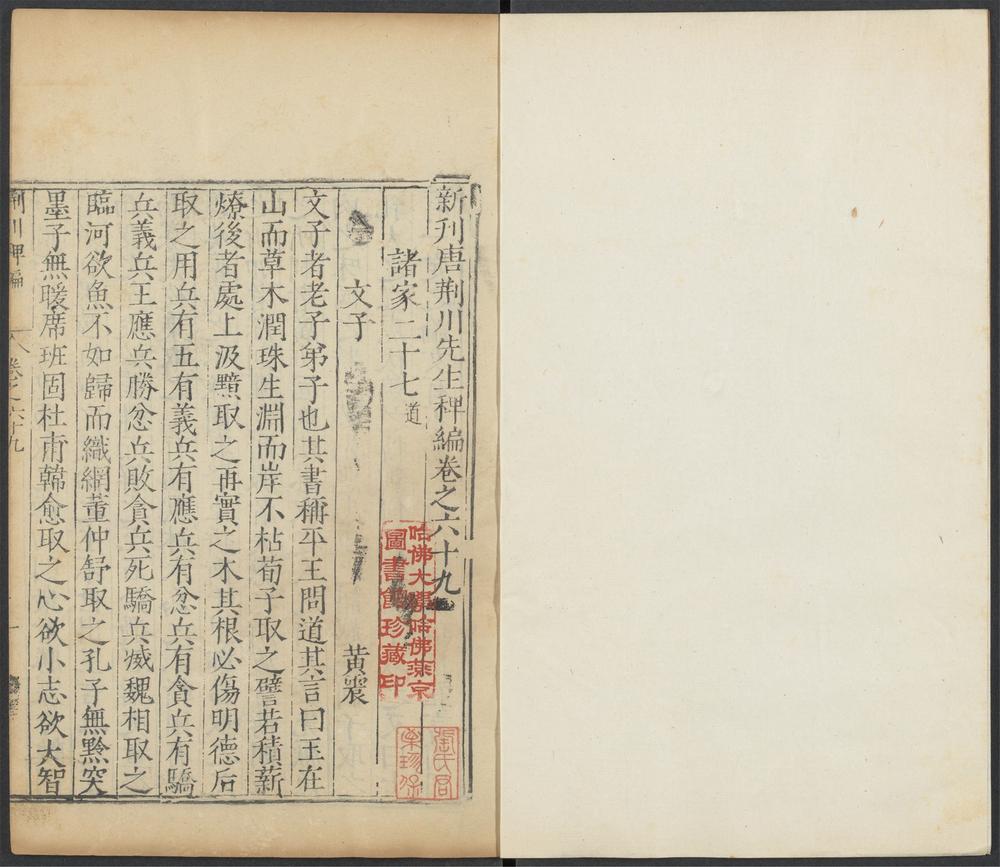 新刋唐荆川先生稗編卷之六十九
諸家二十七道
文子 黃震
文子者老子弟子也其書稱平王問道其言曰王在
山而草木潤珠生淵而岸不枯荀子取之譬若積薪
燎後者處上汲黯取之再實之木其根必傷明德后
取之用兵有五有義兵有應兵有忿兵有貪兵有驕
兵義兵王應兵勝忿兵敗貪兵死驕兵烕魏相取之
臨河欲魚不如歸而織網董仲舒取之孔子無黔突
墨子無暖席班固杜甫韓愈取之心欲小志欲大智
荆川稗編 卷之六十九
哈佛大學哈佛燕京
圖書館珍藏印